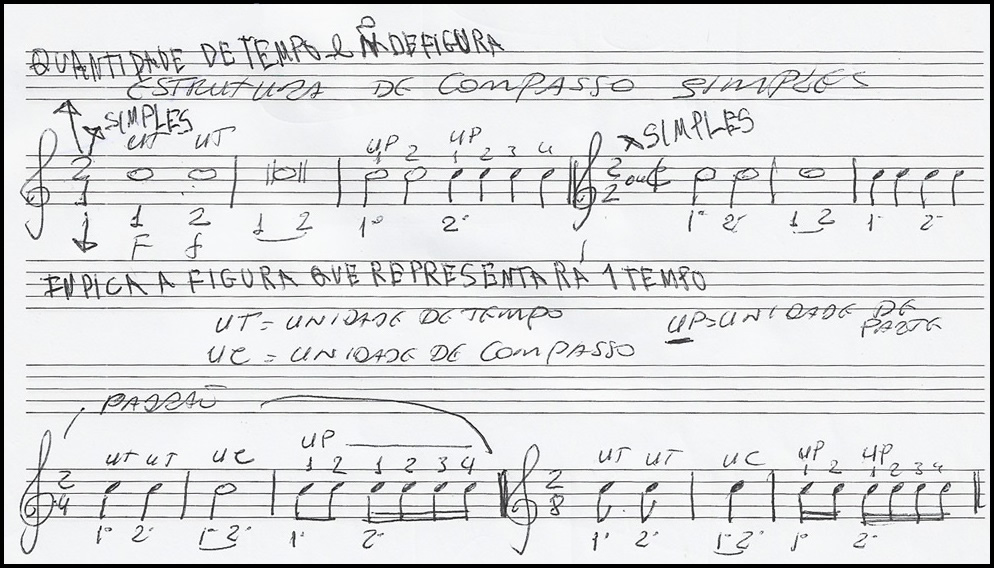 QUANTIDADE DE TEMPO E DE FIGURA
ESTRUTURA DE COMPASSO SIMPLES
SIMPLES
SIMPLES
UT UT UP UP
1 2 1 2 3 4
2 1
2 2 ou ¢
1 2 1 2 1º 2º 1º 2º 1 2 1º 2º
F f
INDICA A FIGURA QUE REPRESENTARÁ 1 TEMPO
UT = UNIDADE DE TEMPO
UP = UNIDADE DE PARTE
UC = UNIDADE DE COMPASSO
PADRÃO
UT UT UC UP UT UT UC UP UP
1 2 1 2 3 4 1 2 1 2 3 4
2 4
2 8
1º 2º 1º 2º 1º 2º 1º 2º 1º 2º 1º 2º